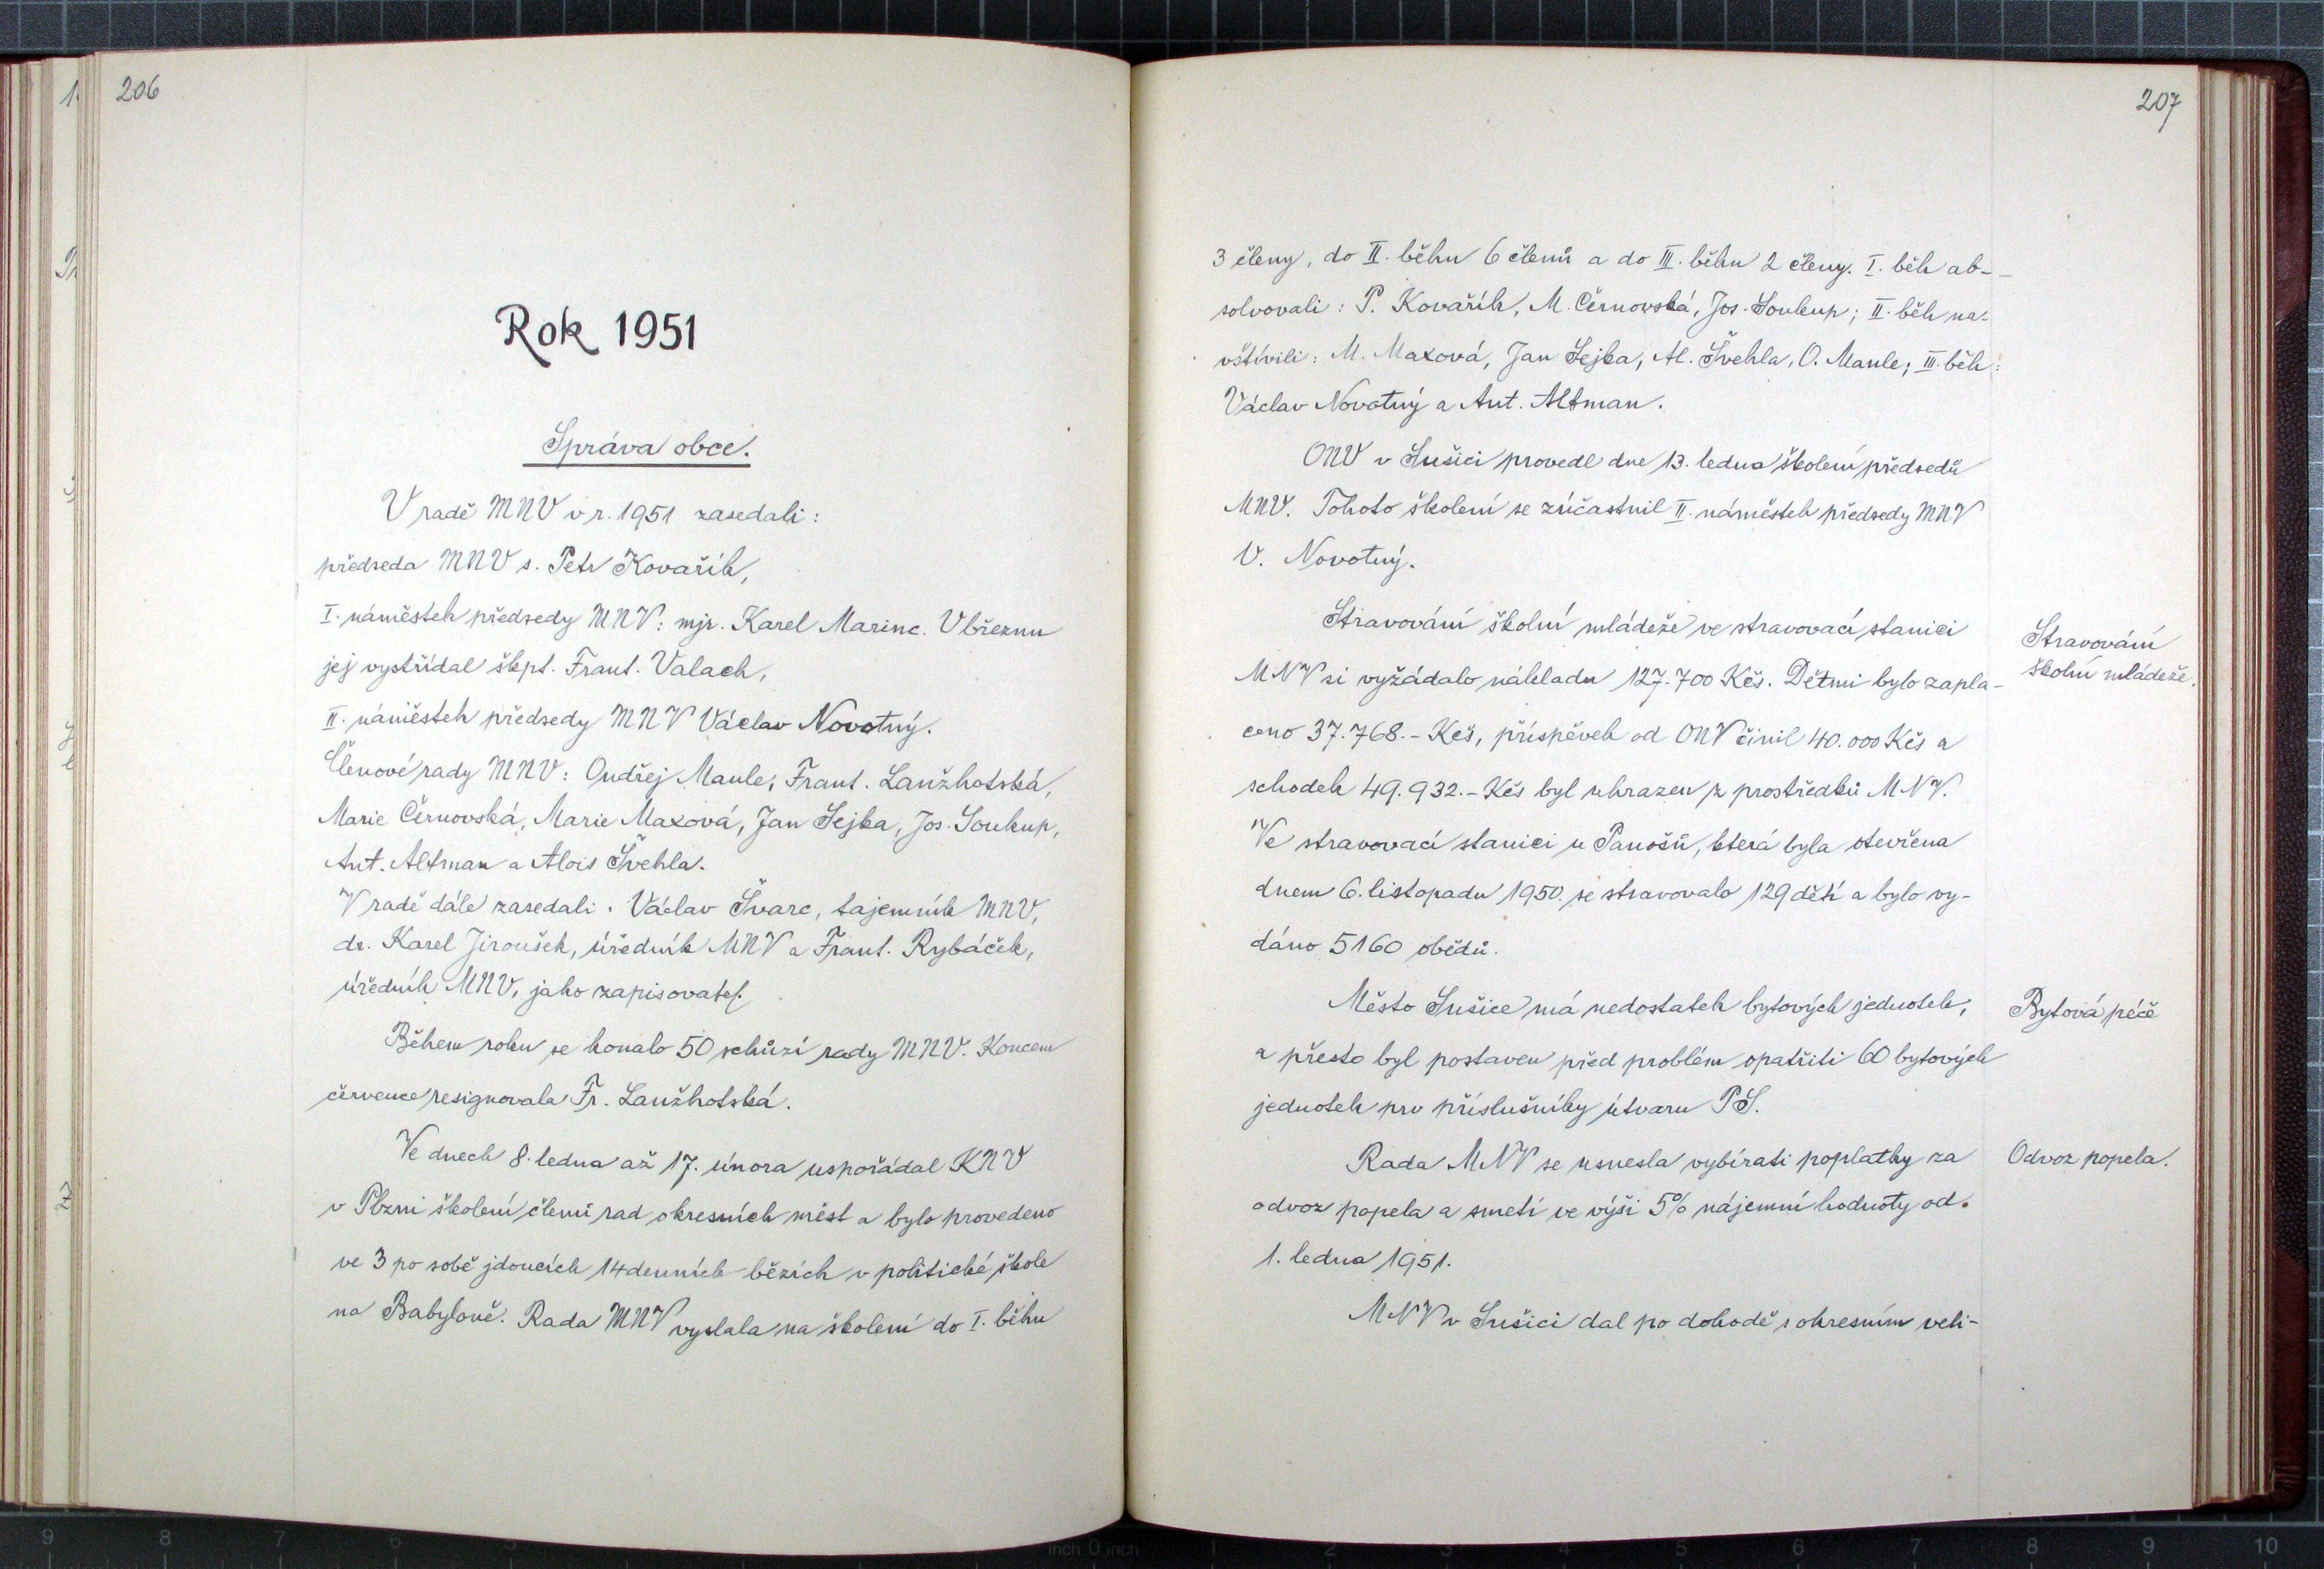 206
Rok 1951
Správa obce.
V radě MNV v r. 1951 zasedali:
předseda MNV s. Petr Kovařík,
I. náměstek předsedy MNV: mjr. Karel Marinc. V březnu
jej vystřídal škpt. Frant. Valach,
II. náměstek předsedy MNV Václav Novotný.
Členové rady MNV: Ondřej Maule, Frant. Lanžhotská,
Marie Černovská, Marie Maxová, Jan Sejka, Jos. Soukup,
Ant. Altman a Alois Švehla.
V radě dále zasedali: Václav Švarc, tajemník MNV,
dr. Karel Jiroušek, úředník MNV a Frant. Rybáček,
úředník MNV, jako zapisovatel.
Během roku se konalo 50 schůzí rady MNV. Koncem
července resignovala Fr. Lanžhotská.
Ve dnech 8. ledna až 17. února uspořádal KNV
v Plzni školení členů rad okresních měst a bylo provedeno
ve 3 po sobě jdoucích 14denních bězích v politické škole
na Babyloně. Rada MNV vyslala na školení do I. běhu
207
3 členy, do II. běhu 6 členů a do III. běhu 2 členy. I. běh ab-
solvovali: P. Kovařík, M. Černovská, Jos. Soukup; II. běh na-
vštívili: M. Maxová, Jan Sejka, Al. Švehla, O. Maule; III. běh:
Václav Novotný a Ant. Altman.
ONV v Sušici provedl dne 13. ledna školení předsedů
MNV. Tohoto školení se zúčastnil II. náměstek předsedy MNV
V. Novotný.
Stravování školní mládeže ve stravovací stanici
MNV si vyžádalo nákladu 127.700 Kčs. Dětmi bylo zapla-
ceno 37.768.- Kčs, příspěvek od ONV činil 40.000 Kčs a
schodek 49.932.- Kčs byl uhrazen z prostředků MNV.
Ve stravovací stanici u Panošů, která byla otevřena
dnem 6. listopadu 1950. se stravovalo 129 dětí a bylo vy-
dáno 5160 obědů.
Stravování
školní mládeže.
Město Sušice má nedostatek bytových jednotek,
a přesto byl postaven před problém opatřiti 60 bytových
jednotek pro příslušníky útvaru PS.
Bytová péče
Rada MNV se usnesla vybírati poplatky za
odvoz popela a smetí ve výši 5% nájemní hodnoty od.
1. ledna 1951.
Odvoz popela.
MNV v Sušici dal po dohodě s okresním veli-
9 8 7 6 5 inch 0 inch 1 2 3 4 5 6 7 8 9 10